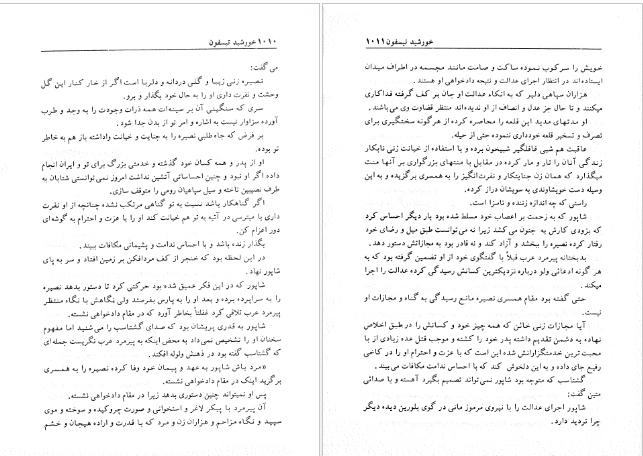 ۱۰۱۰ خورشید تیسفون
می گفت:
نصیره زنی زیبا و گلی دردانه و دلربا است اگر از خار کنار این گل
وحشت و نفرت داری او را به حال خود بگذار و برو.
سری که سنگینی آن بر سینه‌ات همه ذرات وجودت را به وجد و طرب
آورده سزاوار نیست به اشاره و امر تو از بدن جدا شود.
بر فرض که جاه طلبی نصیره را به جنایت و خیانت واداشته باز هم به خاطر
تو بوده.
او از پدر و همه کسان خود گذشته و خدمتی بزرگ برای تو و ایران انجام
داده اگر او نبود و چنین احساساتی آتشین نداشت امروز نمی‌توانستی شتابان به
طرف نصیبین تاخته و سیل سپاهیان رومی را متوقف سازی.
اگر گناهکار باشد نسبت به تو گناهی مرتکب نشده چنانچه از او نفرت
داری یا میترسی در آتیه به تو هم خیانت کند او را با عزت و احترام به گوشه‌ای
دور اعزام کن.
بگذار زنده باشد و با احساس ندامت و پشیمانی مکافات ببیند.
در این لحظه بود که خنجر از کف مردافکن بر زمین افتاد و سر به پای
شاپور نهاد.
شاپور که در این فکر عمیق شده بود حرکتی کرد تا دستور بدهد نصیره
را به سراپرده برده و بعد او را به پارس بفرستد ولی نگاهش با نگاه منتظر
پیرمرد عرب تلاقی کرد غفلتاً بخاطر آورد که در مقام دادخواهی نشسته.
شاپور به قدری پریشان بود که صدای گشتاسب را می‌شنید اما مفهوم
سخنان او را تشخیص نمی‌داد به محض اینکه به پیرمرد عرب نگریست جمله‌ای
که گشتاسب گفته بود در ذهنش ولوله افکند.
«مرد باش شاپور به عهد و پیمان خود وفا کرده نصیره را به همسری
برگزید اینک در مقام دادخواهی نشسته.
پس او نمیتواند چنین دستوری بدهد زیرا در مقام دادخواهی نشسته.
آن پیرمرد با پیکر لاغر و استخوانی و صورت چروکیده و سوخته و موی
سپید و نگاه مزاحم و هزاران زن و مرد که با قدرت و اراده هیجان و خشم
خورشید تیسفون ۱۰۱۱
خویش را سرکوب نموده ساکت و صامت مانند مجسمه در اطراف میدان
ایستاده‌اند در انتظار اجرای عدالت و نتیجه دادخواهی او هستند.
هزاران سپاهی دلیر که به اتکاء عدالت او جان بر کف گرفته فداکاری
میکنند و تا حال جز عدل و انصاف از او ندیده‌اند منتظر قضاوت وی می‌باشند.
او مدتهای مدید این قلعه را محاصره کرده از هرگونه سختگیری برای
تصرف و تسخیر قلعه خودداری ننموده حتی از حیله.
عاقبت هم شبی غافلگیر شبیخون برده و با استفاده از خیانت زنی نابکار
زندگی آنان را تار و مار کرده در مقابل با منتهای بزرگواری بر آنها منت
میگذارد که همان زن جنایتکار و نفرت‌انگیز را به همسری برگزیده و به این
وسیله دست خویشاوندی به سویشان دراز کرده.
راستی که چه اندازه زننده و نامزا است.
شاپور که به زحمت بر اعصاب خود مسلط شده بود بار دیگر احساس کرد
که بزودی کارش به جنون می‌کشد زیرا نه می‌توانست طبق میل و رضای خود
رفتار کرده نصیره را ببخشد و آزاد کند و نه قادر بود به مجازاتش دستور دهد.
بدبختانه پیرمرد عرب قبلاً با گفتگوی خود از او تضمین گرفته بود که به
هر گونه ادعائی ولو درباره نزدیکترین کسانش رسیدگی کرده عدالت را اجرا
میکند.
حتی گفته بود مقام همسری نصیره مانع رسیدگی به گناه و مجازات او
نیست.
آیا مجازات زنی خائن که همه چیز خود و کسانش را در طبق اخلاص
نهاده به دشمن تقدیم داشته پدر خود را کشته و موجب قتل عده زیادی از با
محبت ترین خدمتگزارانش شده این است که با عزت و احترام او را در کاخی
رفیع جای داده و به این دلخوش کند که با احساس ندامت مکافات می‌بیند.
گشتاسب که متوجه بود شاپور نمی‌تواند تصمیم بگیرد آهسته و با صدائی
متین گفت:
شاپور اجرای عدالت را با نیروی مرموز مانی در گوی بلورین دیده دیگر
چرا تردید دارد.